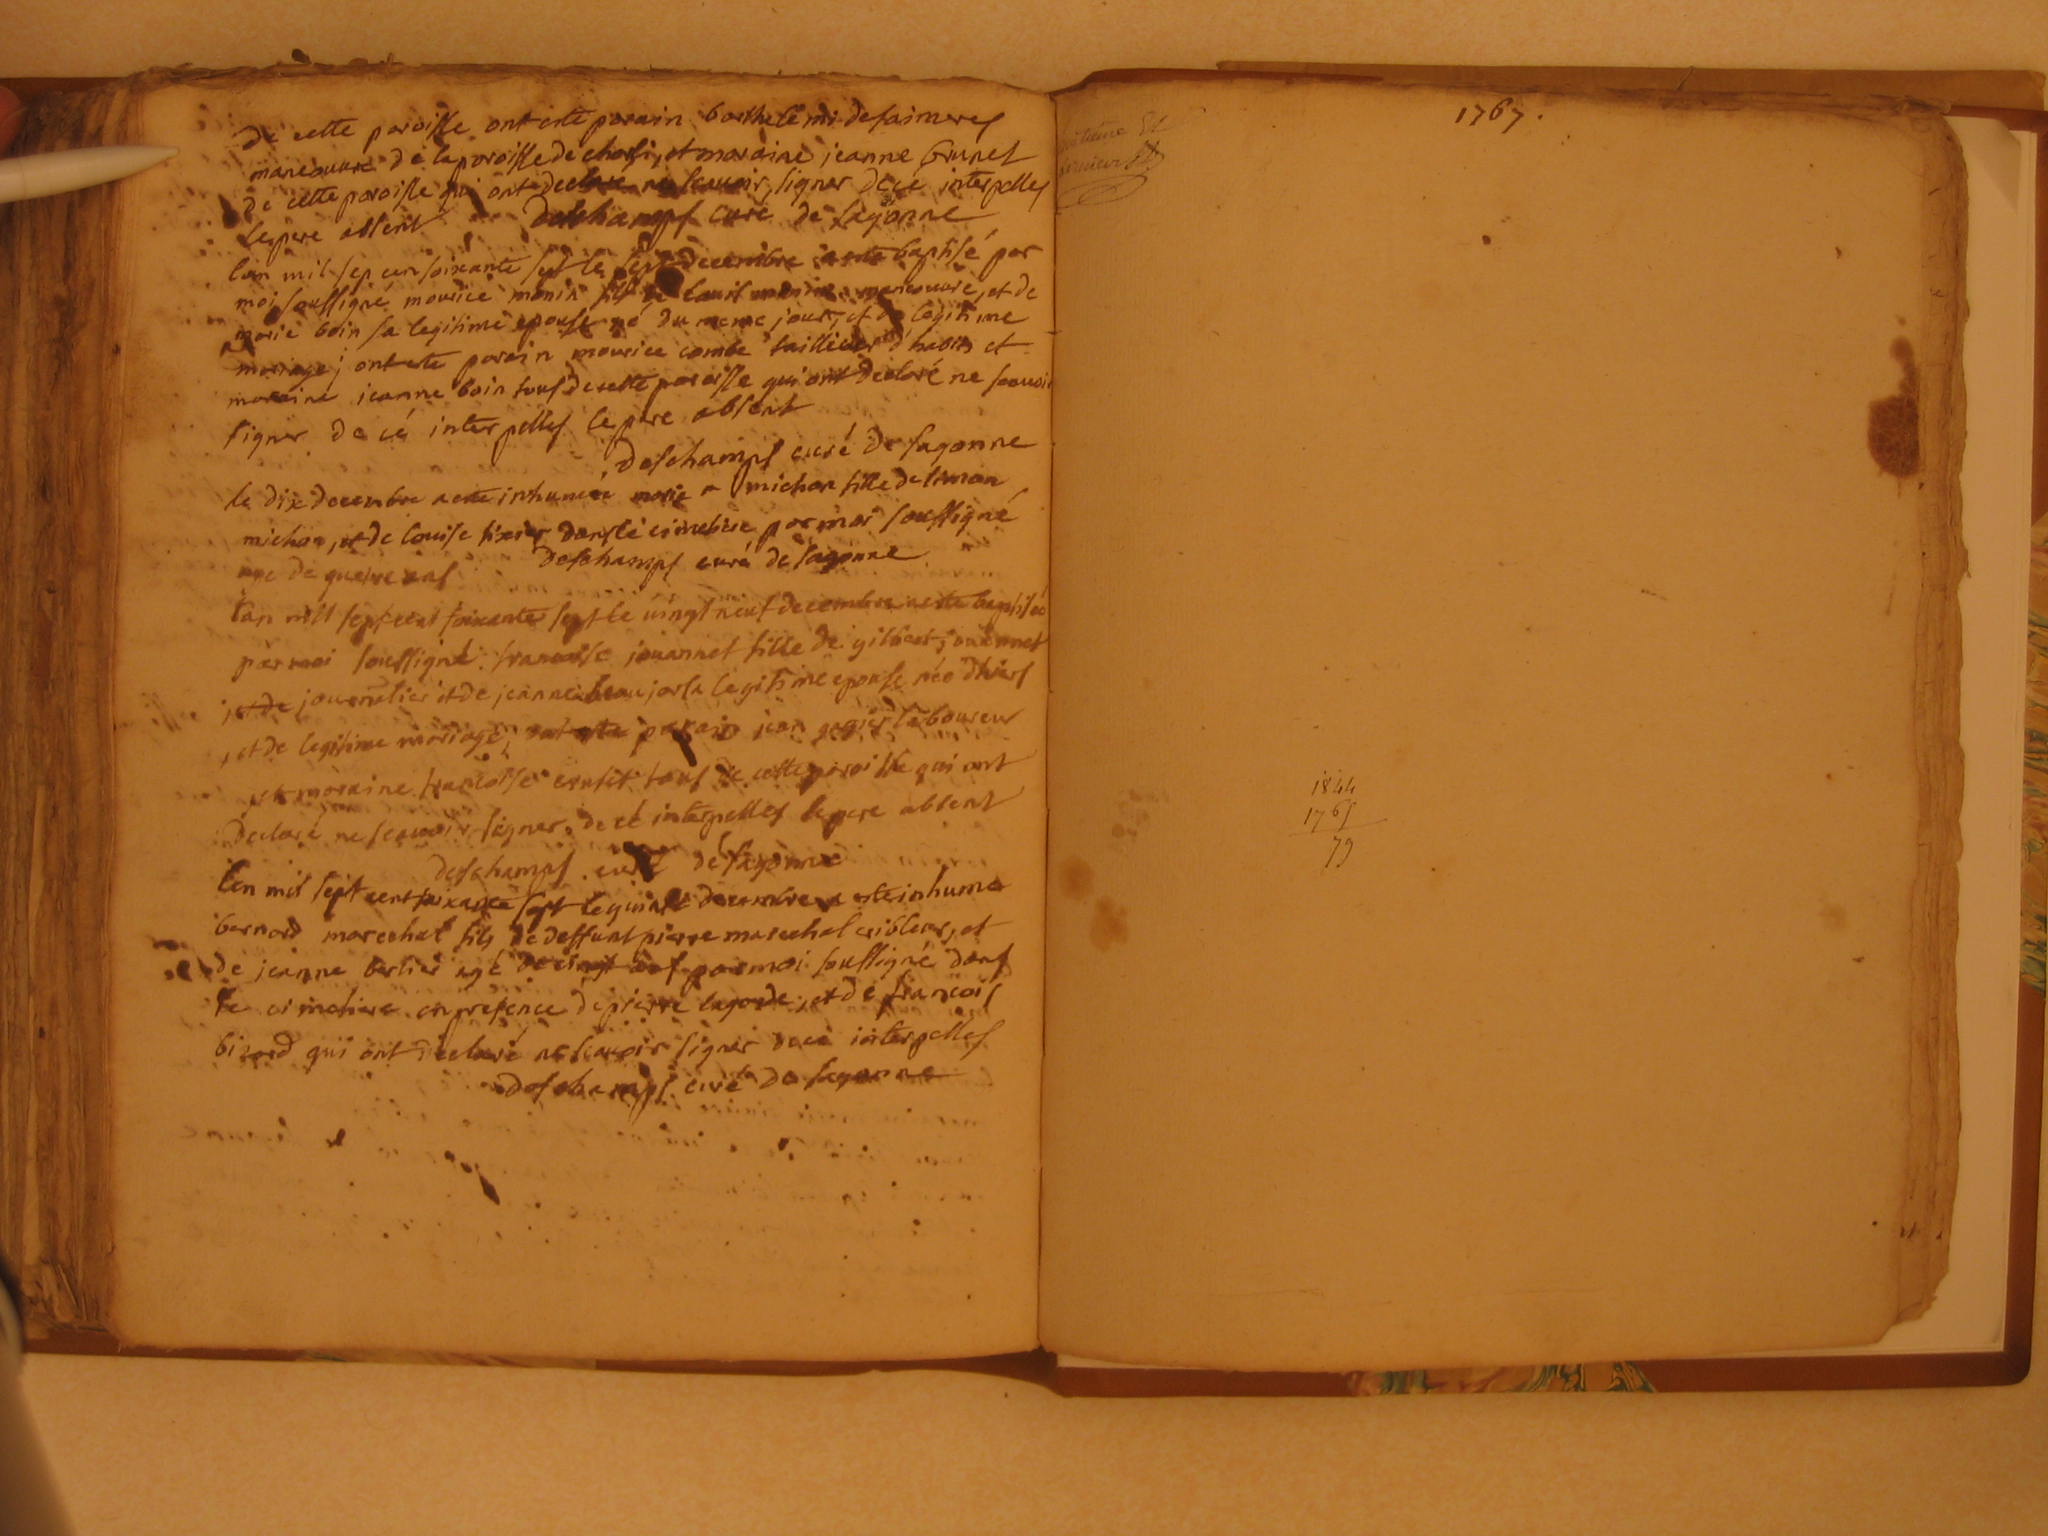 de cette paroisse ont esté parain barthelemi desaimeres
maneouvre de la paroisse de charli, et maraine jeanne brunet
de cette paroisse qui ont declaré ne scauoir signer de cé interpelles
le pere absent deschamps curé de sagonne
lan mil sep cen soixante sept le sept decembre a esté baptisé par
moi soussigné mourice monin fils de louis monin maneouvre, et de
marie boin sa legitime epouse né du meme jour, et de legitime
mariage; ont esté parain mourice combe tailleur d'habits et
maraine jeanne boin tous de cette paroisse qui ont declaré ne scauoir
signer de cé interpelles le pere absent
deschamps curé de sagonne
le dix decembre a esté inhumée marie michon fille de simon
michon, et de louise tixier dans le cimetiere par moi soussigné
deschamps curé de sagonne
age de ans
lan mill sept cent soixante sept le vingt neuf decembre a esté baptisée
par moi soussigné francoise jouannet fille de gilbert jouannet
et de journalier et de jeanne beaujor sa legitime epouse née d'hiers
, et de legitime mariage; ont esté parain jean laboureur
et maraine francoise tous de cette paroisse qui ont
declaré ne scauoir signer de cé interpelles le pere absent
deschamps curé de sagonne
lan mil sept cent soixante sept le decembre a esté inhumé
bernard marechal fils de deffunt pierre marechal cribleur, et
de jeanne berlier agé de ans par moi soussigné dans
le cimetiere en presence de pierre lagorde, et de francois
bizard qui ont declaré ne scauoir signer de cé interpelles
deschamps curé de sagonne
1767.
dernier
1844
1765
79